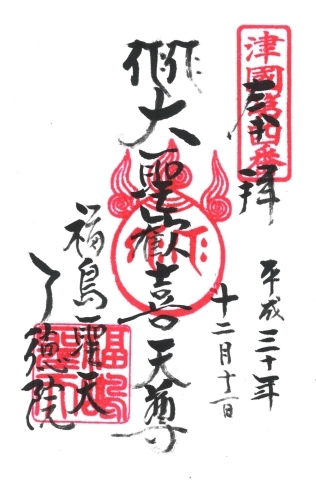 津國第四番
奉拝
平成三十年
十二月十一日
大聖歓喜天尊
福島聖天
了徳院